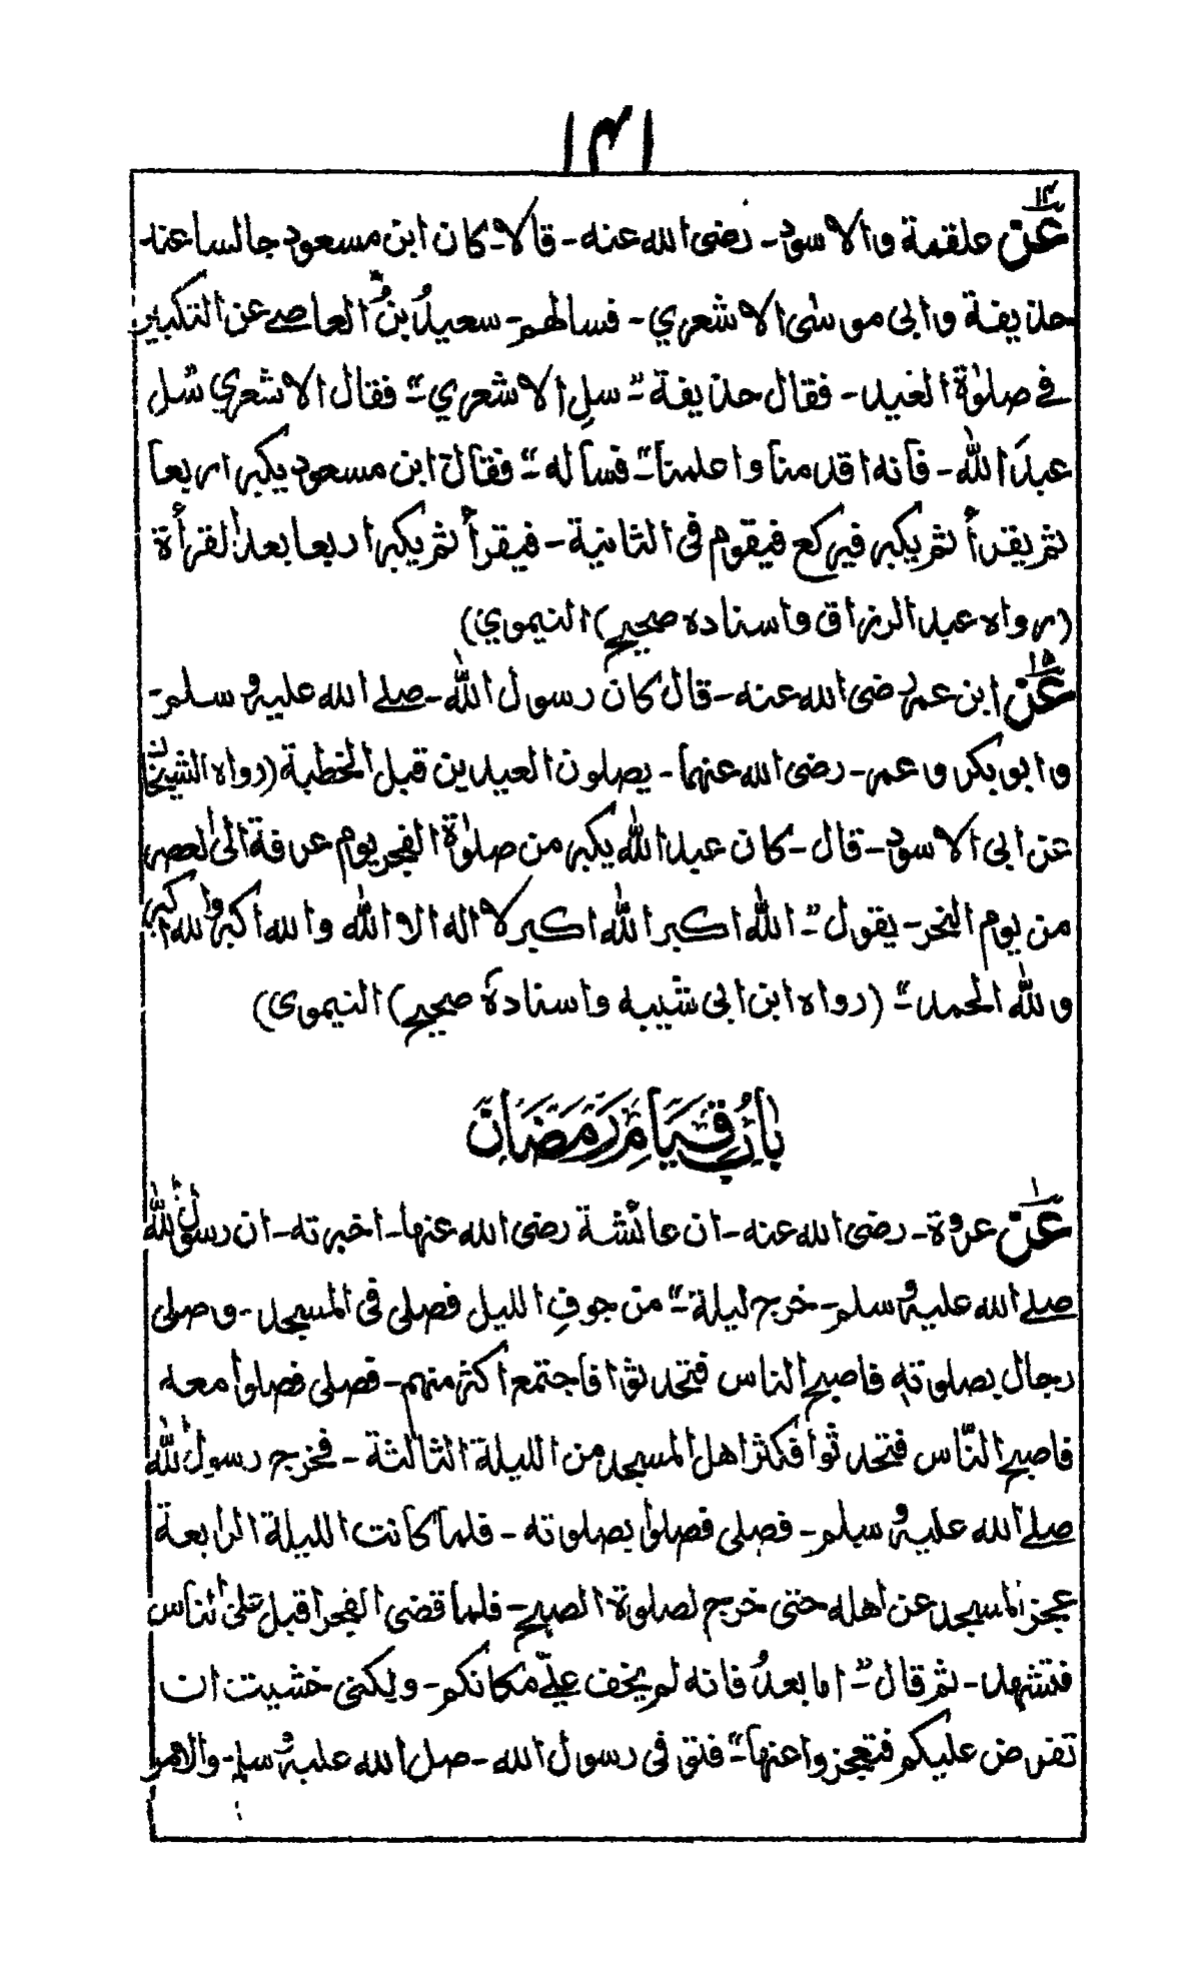 ١٣١
١٤
عن علقمة والاسود۔ رضی الله عنه۔ قالا۔ كان ابن مسعود جالسا عنه
حذيفة وابی موسٰی الاشعري۔ فسالهم۔ سعيدُ بنُ العاصے عن التكبير
فے صلوٰة العيد۔ فقال حذيفة۔" سلِ الاشعري"۔ فقال الاشعري سَل
عبدَ الله۔ فانه اقدمنا واعلمنا"۔ فساله"۔ فقال ابن مسعود يكبر اربعا
ثم يقرأ ثم يكبر فيركع فيقوم فی الثانية۔ فيقرأ ثم يكبر اربعا بعد القرأة
(رواه عبد الرزاق واسناده صحيح) النيموي)
١٥
عن ابن عمر رضی الله عنه۔ قال كان رسول الله۔ صلے الله عليه وسلم۔
وابو بكر وعمر۔ رضی الله عنهما۔ يصلون العيدين قبل الخطبة (رواه الشيخان
عن ابی الاسود۔ قال۔ كان عبد الله يكبر من صلوٰة الفجر يوم عرفة الی العصر
من يوم النحر۔ يقول"۔ الله اكبر الله اكبر لا اله الا الله والله اكبر والله اكبر
ولله الحمد"۔ (رواه ابن ابی شيبه واسناده صحيح) النيموی)
بابُ قيامِ رَمَضَان
١
عن عروة۔ رضی الله عنه۔ ان عائشة رضی الله عنها۔ اخبرته۔ ان رسول الله
صلے الله عليه وسلم۔ خرج ليلة"۔ من جوفِ الليل فصلی فی المسجد۔ وصلی
رجال بصلوته فاصبح الناس فتحدثوا فاجتمع اكثر منهم۔ فصلی فصلوا معه
فاصبح النّاس فتحدثوا فكثر اهل المسجد من الليلة الثالثة۔ فخرج رسول الله
صلے الله عليه وسلم۔ فصلی فصلوا بصلوته۔ فلما كانت الليلة الرابعة
عجز المسجد عن اهله حتی خرج لصلوة الصبح۔ فلما قضی الفجر اقبل علی الناس
فتشهد۔ ثم قال"۔ اما بعدُ فانه لم يخف علیّ مكانكم۔ ولكنی خشيت ان
تفرض عليكم فتعجزوا عنها"۔ فتق فی رسول الله۔ صلی الله عليه وسلم۔ والامر